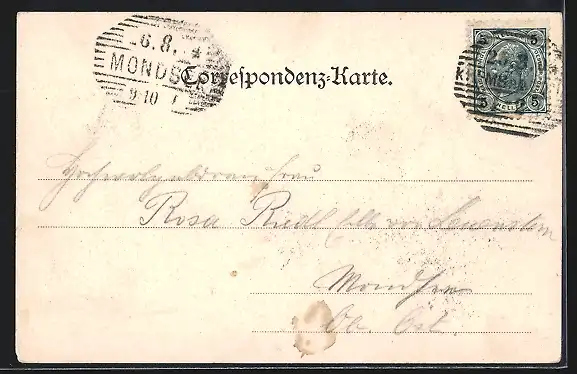 6.8.
MONDSEE
9-10
Correspondenz-Karte.
5 5
5 HELLER 5
Hochwohlgeboren Frau
Rosa Riedl von
Mondsee
Ob. Öst.